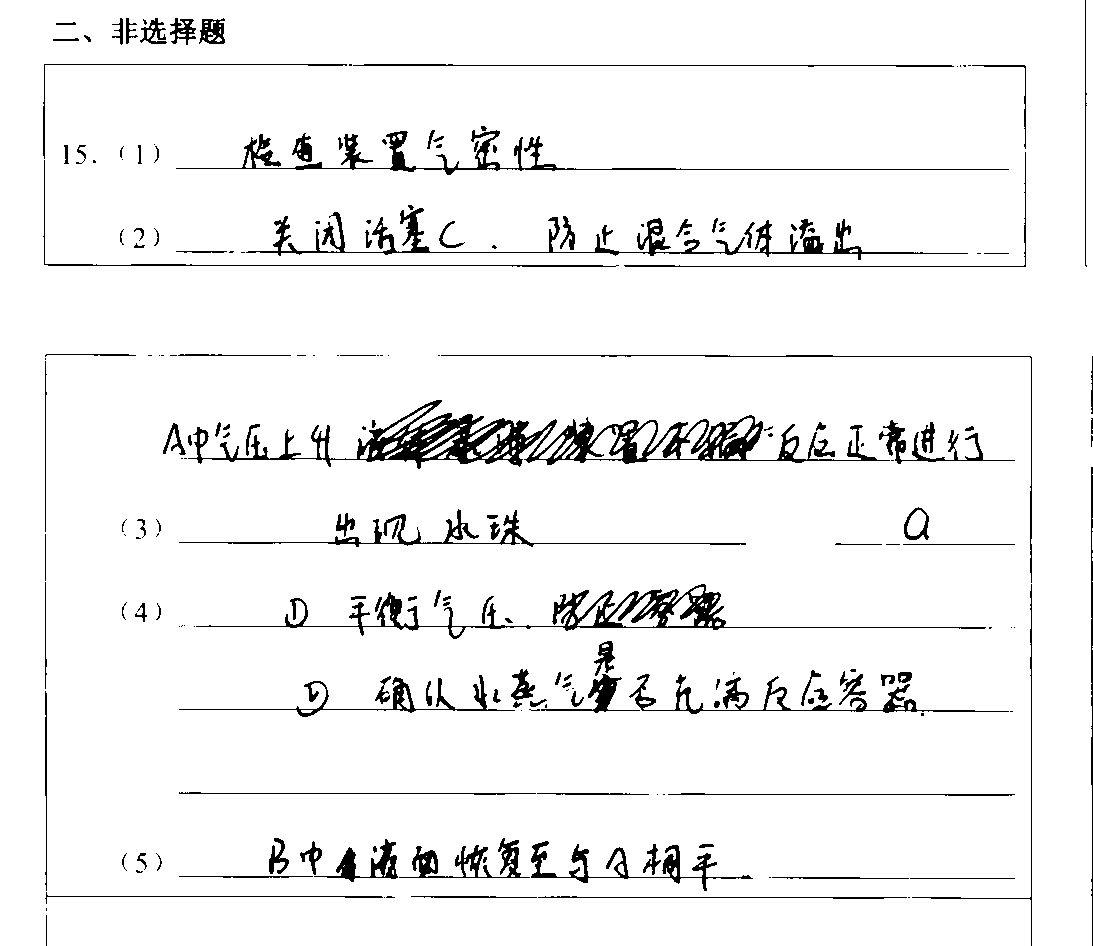 二、非选择题
15.（1） 检查装置气密性
（2） 关闭活塞C. 防止混合气体溢出
A中气压上升 反应正常进行
（3） 出现水珠 a
（4） ① 平衡气压.
② 确认水蒸气是否充满反应容器.
（5） B中液面恢复至与A相平.